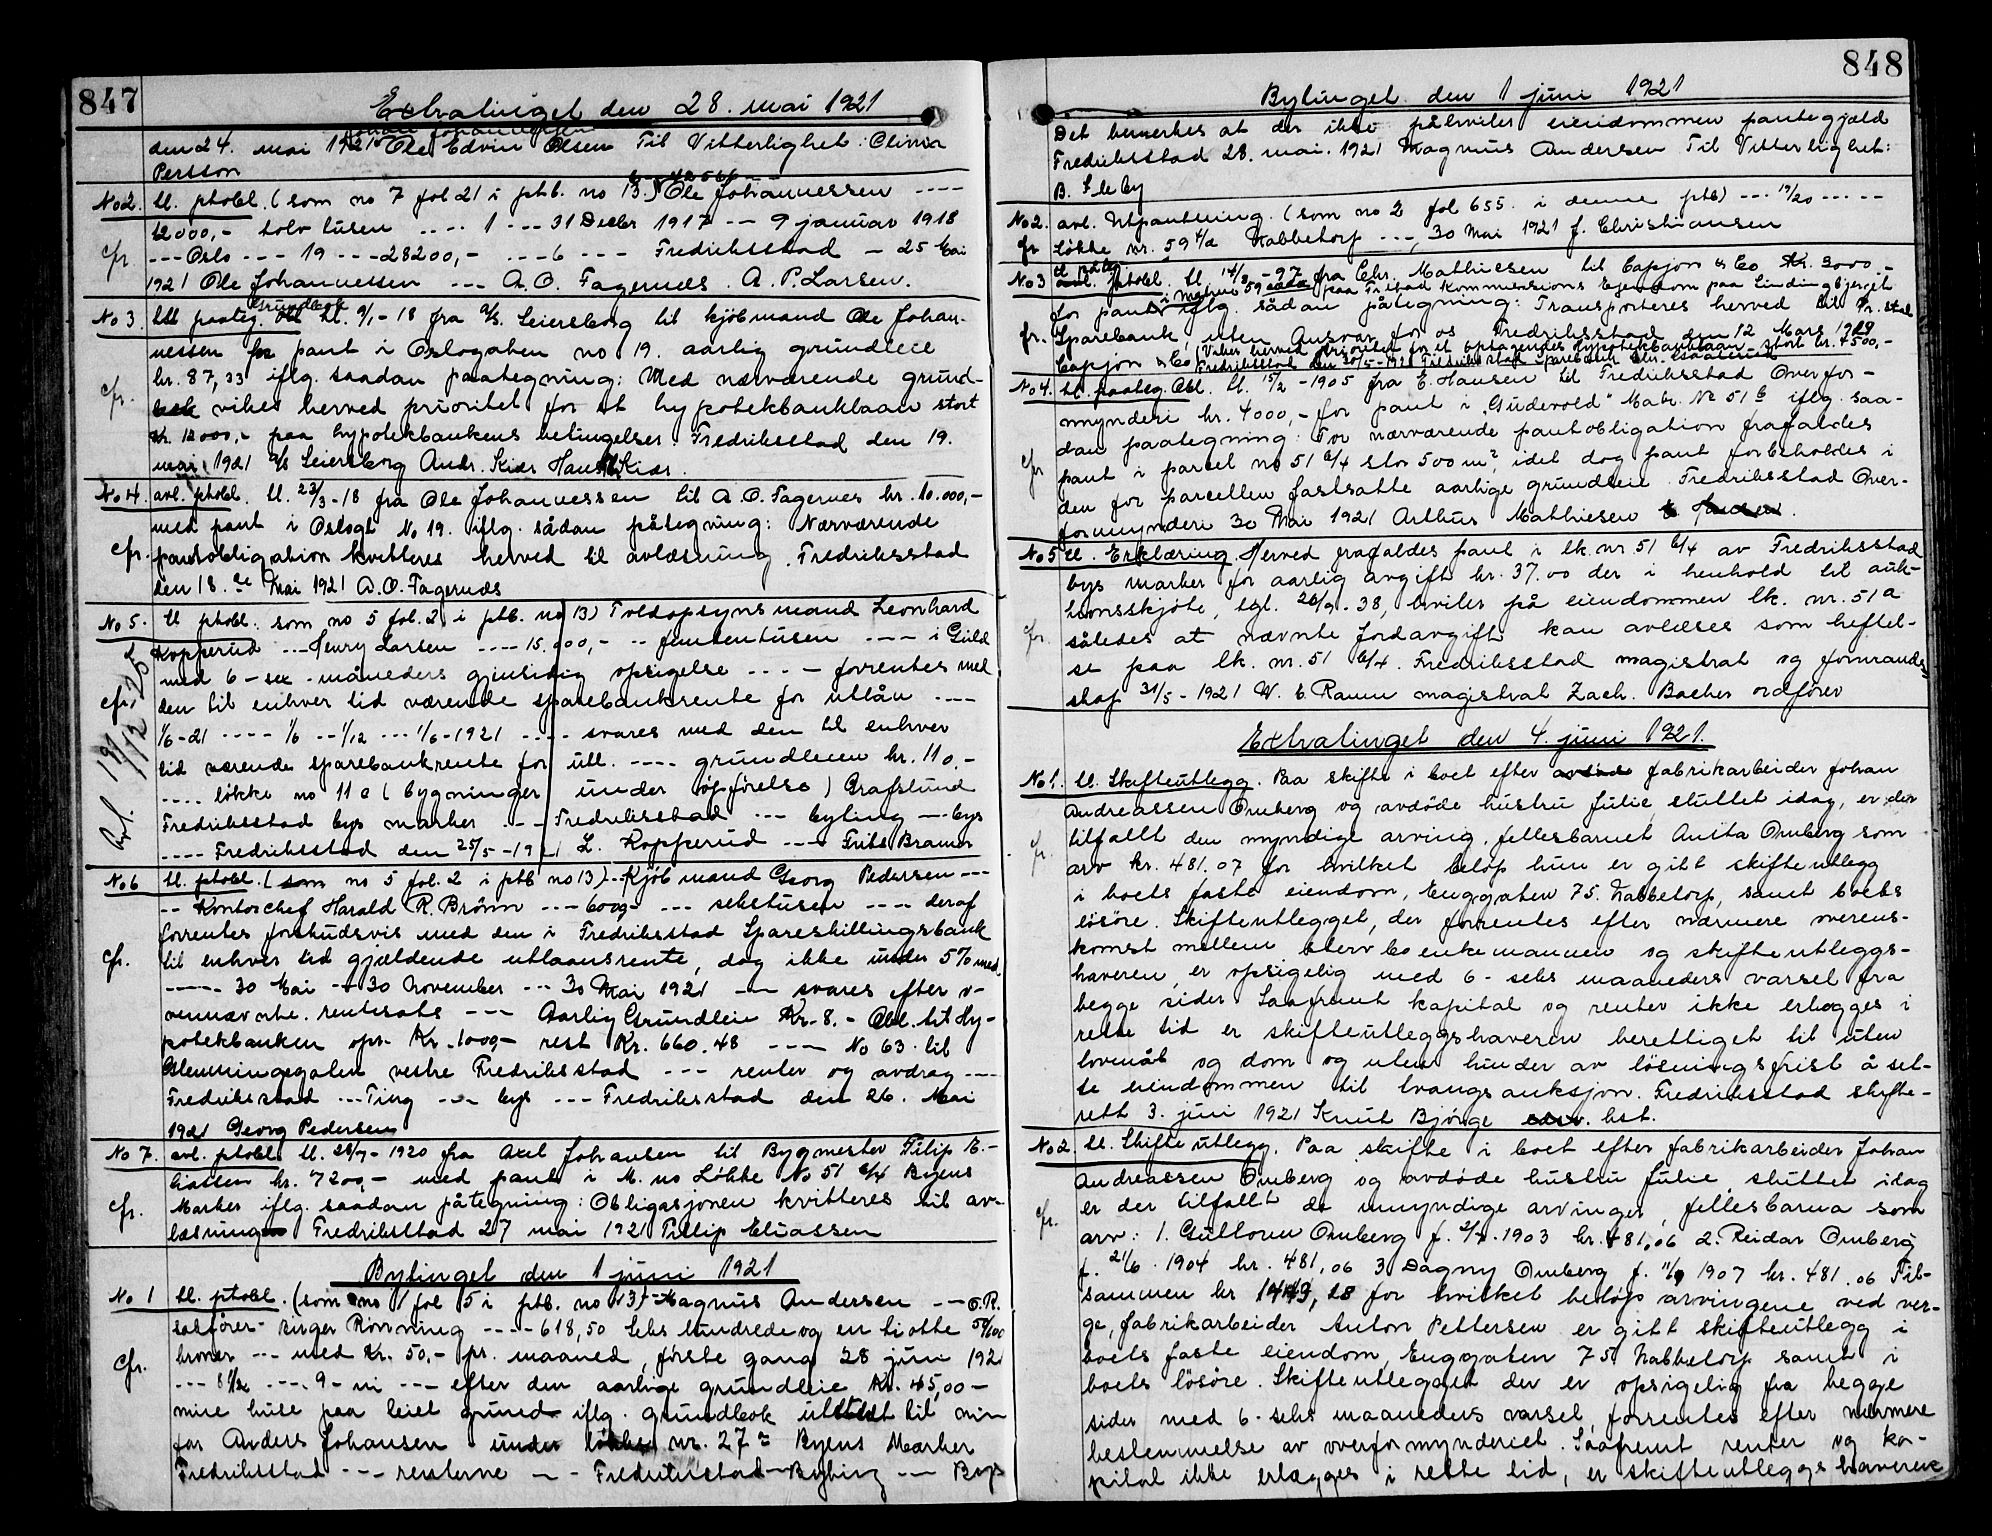 847
Extratinget den 28. mai 1921
Johan Johannessen
den 24. mai 1921 Ole Edvin Olsen Til Vitterlighet: Clima
Persson
No 2. tl. ptobl. (som no 7 fol 21 i ptb. no 13.) Ole Johannessen ----
12000,- tolv tusen .... 1 --- 31 Decbr 1917 -- 9 januar 1918
cfr --- Oslo --- 19 --- 28200,- --- 6 --- Fredriksstad - 25 Mai
1921 Ole Johannessen --- A. O. Fagernæs. A. P. Larsen.
Grundbok
No 3. tl. paateg. tl. 9/1-18 fra A/s. Leiersborg til kjöbmand Ole Johan-
nessen for pant i Oslogaten no 19. aarlig grundleie
kr. 87,33 iflg. saadan paategning: Med nærværende grund-
cfr. bok vikes herved prioritet for et hypotekbanklaan stort
kr. 12000,- paa hypotekbankens betingelser. Fredriksstad den 19.
mai 1921 A/s Leiersborg Andr. Kiær Hans Kiær.
No 4. avl. ptobl. tl. 23/3-18 fra Ole Johannessen til A. O. Fagernes kr. 10.000,-
med pant i Oslogt No 19. iflg. sådan påtegning: Nærværende
cfr. pantobligation kvitteres herved til avlæsning. Fredriksstad
den 18. de Mai 1921 A. O. Fagernæs
No 5. tl ptobl. som no 5 fol. 2 i ptb. no 13) Toldopsynsmand Leonhard
Kopperud --- Henry Larsen ---- 15.000,- -- femtentusen ---- i Guld
med 6 - sex - måneders gjensidig opsigelse ---- forrentes med
cfr. den til enhver tid værende sparebankrente for utlån ----
1/6-21 ---- 1/6 -- 1/12 --- 1/6-1921 ---- svares med den til enhver
tid værende sparebankrente for utl. ---- grundleien kr. 110.-
---- løkke no 11 a (bygninger under opførelse) Grafslund
Fredriksstad bys marker --- Fredriksstad --- byting --- bys
---- Fredriksstad den 25/5-1921 L. Kopperud --- Frits Bramer
Avl. 19/12 25
No 6 tl. ptobl. (som no 5 fol. 2 i ptb no 13) -- Kjöbmand Georg Pedersen ---
-- Kontorchef Harald R. Brönn --- 6000,- --- sekstusen ---- deraf
forrentes forskudsvis med den i Fredriksstad Spareskillingsbank
cfr. til enhver tid gjældende utlaansrente, dog ikke under 5% med.
----- 30 Mai -- 30 November --- 30 Mai 1921 --- svares efter o-
vennævnte rentesats --- Aarlig Grundleie Kr. 8.- Obl. til Hy-
potekbanken opr. Kr. 1000,- rest Kr. 660.48 ---- No 63 til
Glemmingegaten vestre Fredriksstad --- renter og avdrag ----
Fredriksstad --- Ting --- bys --- Fredriksstad den 26. Mai
1921 Georg Pedersen
No 7. avl. ptobl. tl. 28/7-1920 fra Axel Johansen til Bygmester Filip E-
liassen kr. 7200,- med pant i M. no Løkke No 51 c/4 Byens
cfr. Marker iflg. saadan påtegning: Obligasjonen kvitteres til av-
læsning. Fredriksstad 27 mai 1921 Fillip Eliassen
Bytinget den 1 juni 1921
No 1 tl. ptobl. (som no 1 fol 5 i ptb. no 13) - Magnus Andersen --- O. R.
saksfører Birger Rønning ---- 618,50 Seks hundrede og en ti otte 50/100
kroner --- med Kr. 50,- pr. maaned, første gang 28 juni 1921
cfr. --- 8 1/2 ---- 9 - ni --- efter den aarlige grundleie Kr. 45,00 -
mine huse paa leiet grund iflg. grundbok utstedt til min
far Anders Johansen under løkke nr. 27 Byens Marker
Fredriksstad --- renterne --- Fredriksstad - Byting --- Bys
848
Bytinget den 1 juni 1921
Det bemerkes at der ikke påhviler eiendommen pantegjæld
Fredriksstad 28. mai. 1921 Magnus Andersen Til Vitterlighet:
B. Sleby
No 2. avl. Utpantning. (som no 2 fol 655. i denne ptb) --- 19/20 -----
cfr Løkke nr. 59 4/a Nabbetorp ---, 30 Mai 1921 f. Christiansen
No 3 tl. påteg. ptobl. tl. 14/8-97 fra Chr. Mathiesen til Capjon & Co Kr. 3000.-
i Matr. no 59 paa Frstad Kommunions Ejendom paa Lindingbjerget
for pant iflg. sådan påtegning: Transporteres herved til Fr. stad
cfr. Sparebank, uten Ansvar for os Fredriksstad den 12 Mars 1919
Capjon & Co. Viker herved prioritet for et optagendes Hypotekbanklaan stort kr. 4500,-
Fredriksstad den 30/5-1921 Fredriksstad Sparebank Chr. Isaachsen
No 4. tl. paateg. Obl. tl. 15/2-1905 fra E. Hansen til Fredriksstad Overfor-
mynderi kr. 4000,- for pant i "Gudevold" Matr. No 51 b iflg. saa-
dan paategning: For nærværende pantobligation frafaldes
cfr pant i parcel no 51 b/4 stor 500 m², idet dog pant forbeholdes i
den for parcellen fastsatte aarlige grundleie. Fredriksstad Over-
formynderi 30 Mai 1921 Arthur Mathiesen
No 5 tl. Erklæring. Herved frafaldes pant i lk. nr 51 b/4 av Fredriksstad
bys marker for aarlig avgift kr. 37.00 der i henhold til auk-
tionsskjöte, tgl. 26/9-38, hviler på eiendommen lk. nr. 51 a
cfr. således at nævnte Jordavgift kan avlæses som heftel-
se paa lk. nr. 51 b/4. Fredriksstad magistrat og formands-
skap 31/5-1921 W. C. Ramm magistrat Zach. Backer ordfører
Extratinget den 4. juni 1921.
No 1. tl. Skifteutlegg. Paa skifte i boet efter fabrikarbeider Johan
Andreassen Omberg og avdöde hustru Julie, sluttet idag, er der
cfr. tilfallt den myndige arving, fellesbarnet Anita Omberg som
arv kr. 481.07 for hvilket belöp hun er gitt skifteutlegg
i boets faste eiendom, Enggaten 75. Nabbetorp, samt boets
lösöre. Skifteutlegget, der forrentes efter nærmere overens-
komst mellem stervboenkemannen og skifteutleggs-
haveren, er opsigelig med 6 - seks maaneders varsel fra
begge sider. Saafremt kapital og renter ikke erlægges i
rette tid er skifteutleggshaveren berettiget til uten
lovmål og dom og uten hinder av lösningsfrist å set-
te eiendommen til tvangsauksjon. Fredriksstad skifte-
rett 3. juni 1921 Knut Bjørge kst.
No 2. tl. Skifteutlegg. Paa skifte i boet efter fabrikarbeider Johan
Andreassen Omberg og avdöde hustru Julie, sluttet idag
cfr. er der tilfallt de umyndige arvinger, fellesbarna som
arv: 1. Guttorm Omberg f. 2/4-1903 kr. 481,06 2. Reidar Omberg
f. 21/6-1904 kr. 481,06 3 Dagny Omberg f. 11/9 1907 kr. 481.06 Til-
sammen kr 1443,18 for hvilket belöp arvingene ved ver-
ge, fabrikarbeider Anton Pettersen er gitt skifteutlegg i
boets faste eiendom, Enggaten 75 Nabbetorp samt i
boets lösöre. Skifteutlegget der er opsigelig fra begge
sider med 6 - seks maaneders varsel, forrentes efter nærmere
bestemmelse av overformynderiet. Saafremt renter og ka-
pital ikke erlægges i rette tid, er skifteutleggshaveren